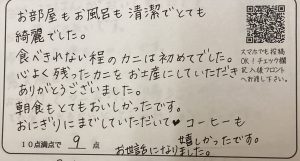 お部屋もお風呂も清潔でとても
綺麗でした。
食べきれない程のカニは初めてでした。
心よく残ったカニをお土産にしていただき
ありがとうございました。
朝食もとてもおいしかったです。
おにぎりにまでしていただいて♥コーヒーも
嬉しかったです。
お世話になりました。
10点満点で 9 点
スマホでも投稿
OK!チェック欄
記入後フロント
へお渡し下さい。